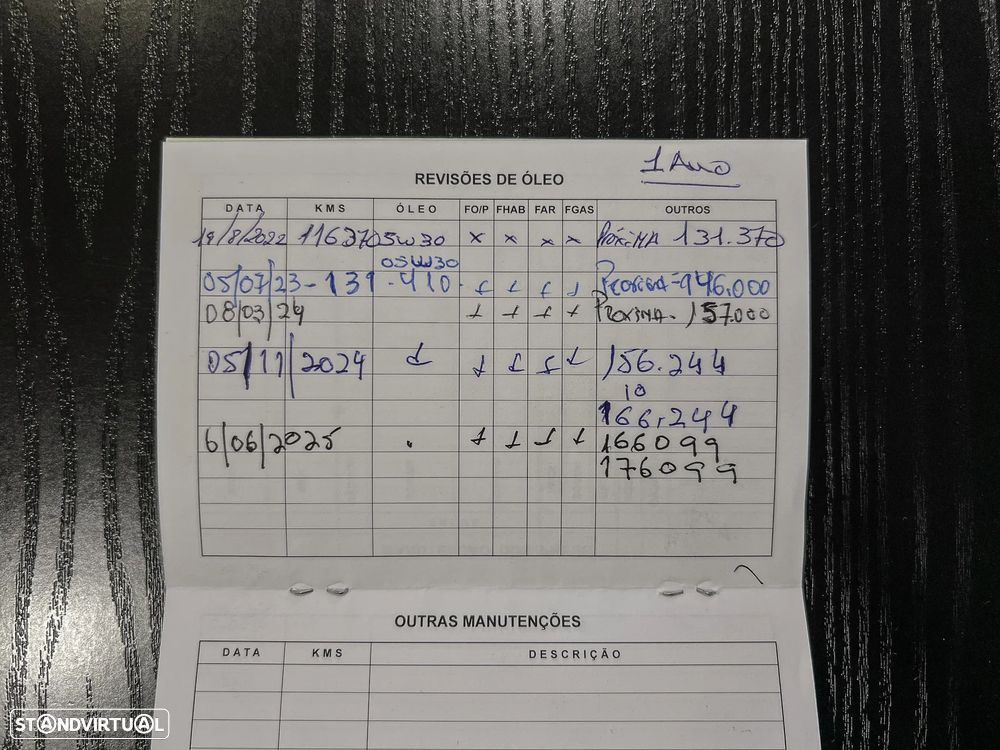 1 Ano
REVISÕES DE ÓLEO
DATA KMS ÓLEO FO/P FHAB FAR FGAS OUTROS
19/8/2022 116.370 5W30 x x x x PróxiMA 131.370
05W30
05/07/23 - 131.410. PROXIMA - 146.000
08/03/24 PROXIMA - 157.000
05/11/2024 156.244
10
166.244
6/06/2025 166099
176099
OUTRAS MANUTENÇÕES
DATA KMS DESCRIÇÃO
STANDVIRTUAL